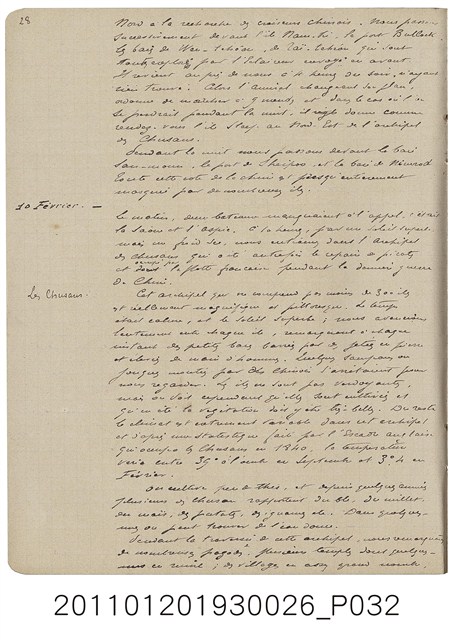 28
Nord à la recherche des croiseurs chinois. Nous passons
successivement devant l'île Nam-ki, le port Bullock
les baies de Wen-tchéou, de Taï-tchéou qui sont
toutes explorées par l'éclaireur envoyé en avant.
Il revient auprès de nous à 4 heures du soir, n'ayant
rien trouvé. Alors l'amiral changeant de plan,
ordonne de marcher à nœuds, et dans le cas où l'on
se perdrait pendant la nuit, il nous donne comme
rendez-vous l'île Steep au Nord Est de l'archipel
des Chusans.
Pendant la nuit nous passons devant la baie
San-moun, le port de Sheipoo et la baie de Nimrod
Toute cette côte de la Chine est presqu'entièrement
masquée par de nombreuses îles.
10 Février. —
Le matin, deux bateaux manquaient à l'appel: c'était
la Saône et l'Aspic. A heures, par un soleil superbe
mais un froid sec, nous entrons dans l'archipel
des Chusans qui a été autrefois le repaire de pirates
et occupé par la flotte française pendant la dernière guerre
de Chine.
Les Chusans.
Cet archipel qui ne comprend pas moins de 300 îles
est réellement magnifique et pittoresque. Le temps
était calme, et le soleil superbe; nous avancions
lentement entre chaque île, remarquant à chaque
instant des petites baies barrées par des jetées en pierre
et élevées de main d'hommes. Quelques sampans ou
jonques montées par des Chinois s'arrêtaient pour
nous regarder. Les îles ne sont pas verdoyantes,
mais on voit cependant qu'elles sont cultivées et
qu'en été la végétation doit y être très belle. Du reste
le climat est extrêmement variable dans cet archipel
et d'après une statistique faite par l'Escadre anglaise
qui occupa les Chusans en 1840, la température
varie entre 35° à l'ombre en Septembre et 3° en
Février.
On cultive peu de thé, et depuis quelques années
plusieurs des Chusan rapportent du blé, du millet,
du maïs, des patates, des ignames etc. Dans quelques-
unes on peut trouver de l'eau douce.
Pendant la traversée de cet archipel, nous remarquons
de nombreuses pagodes. Plusieurs temples dont quelques-
uns en ruines; des villages en assez grand nombre.
201101201930026_P032